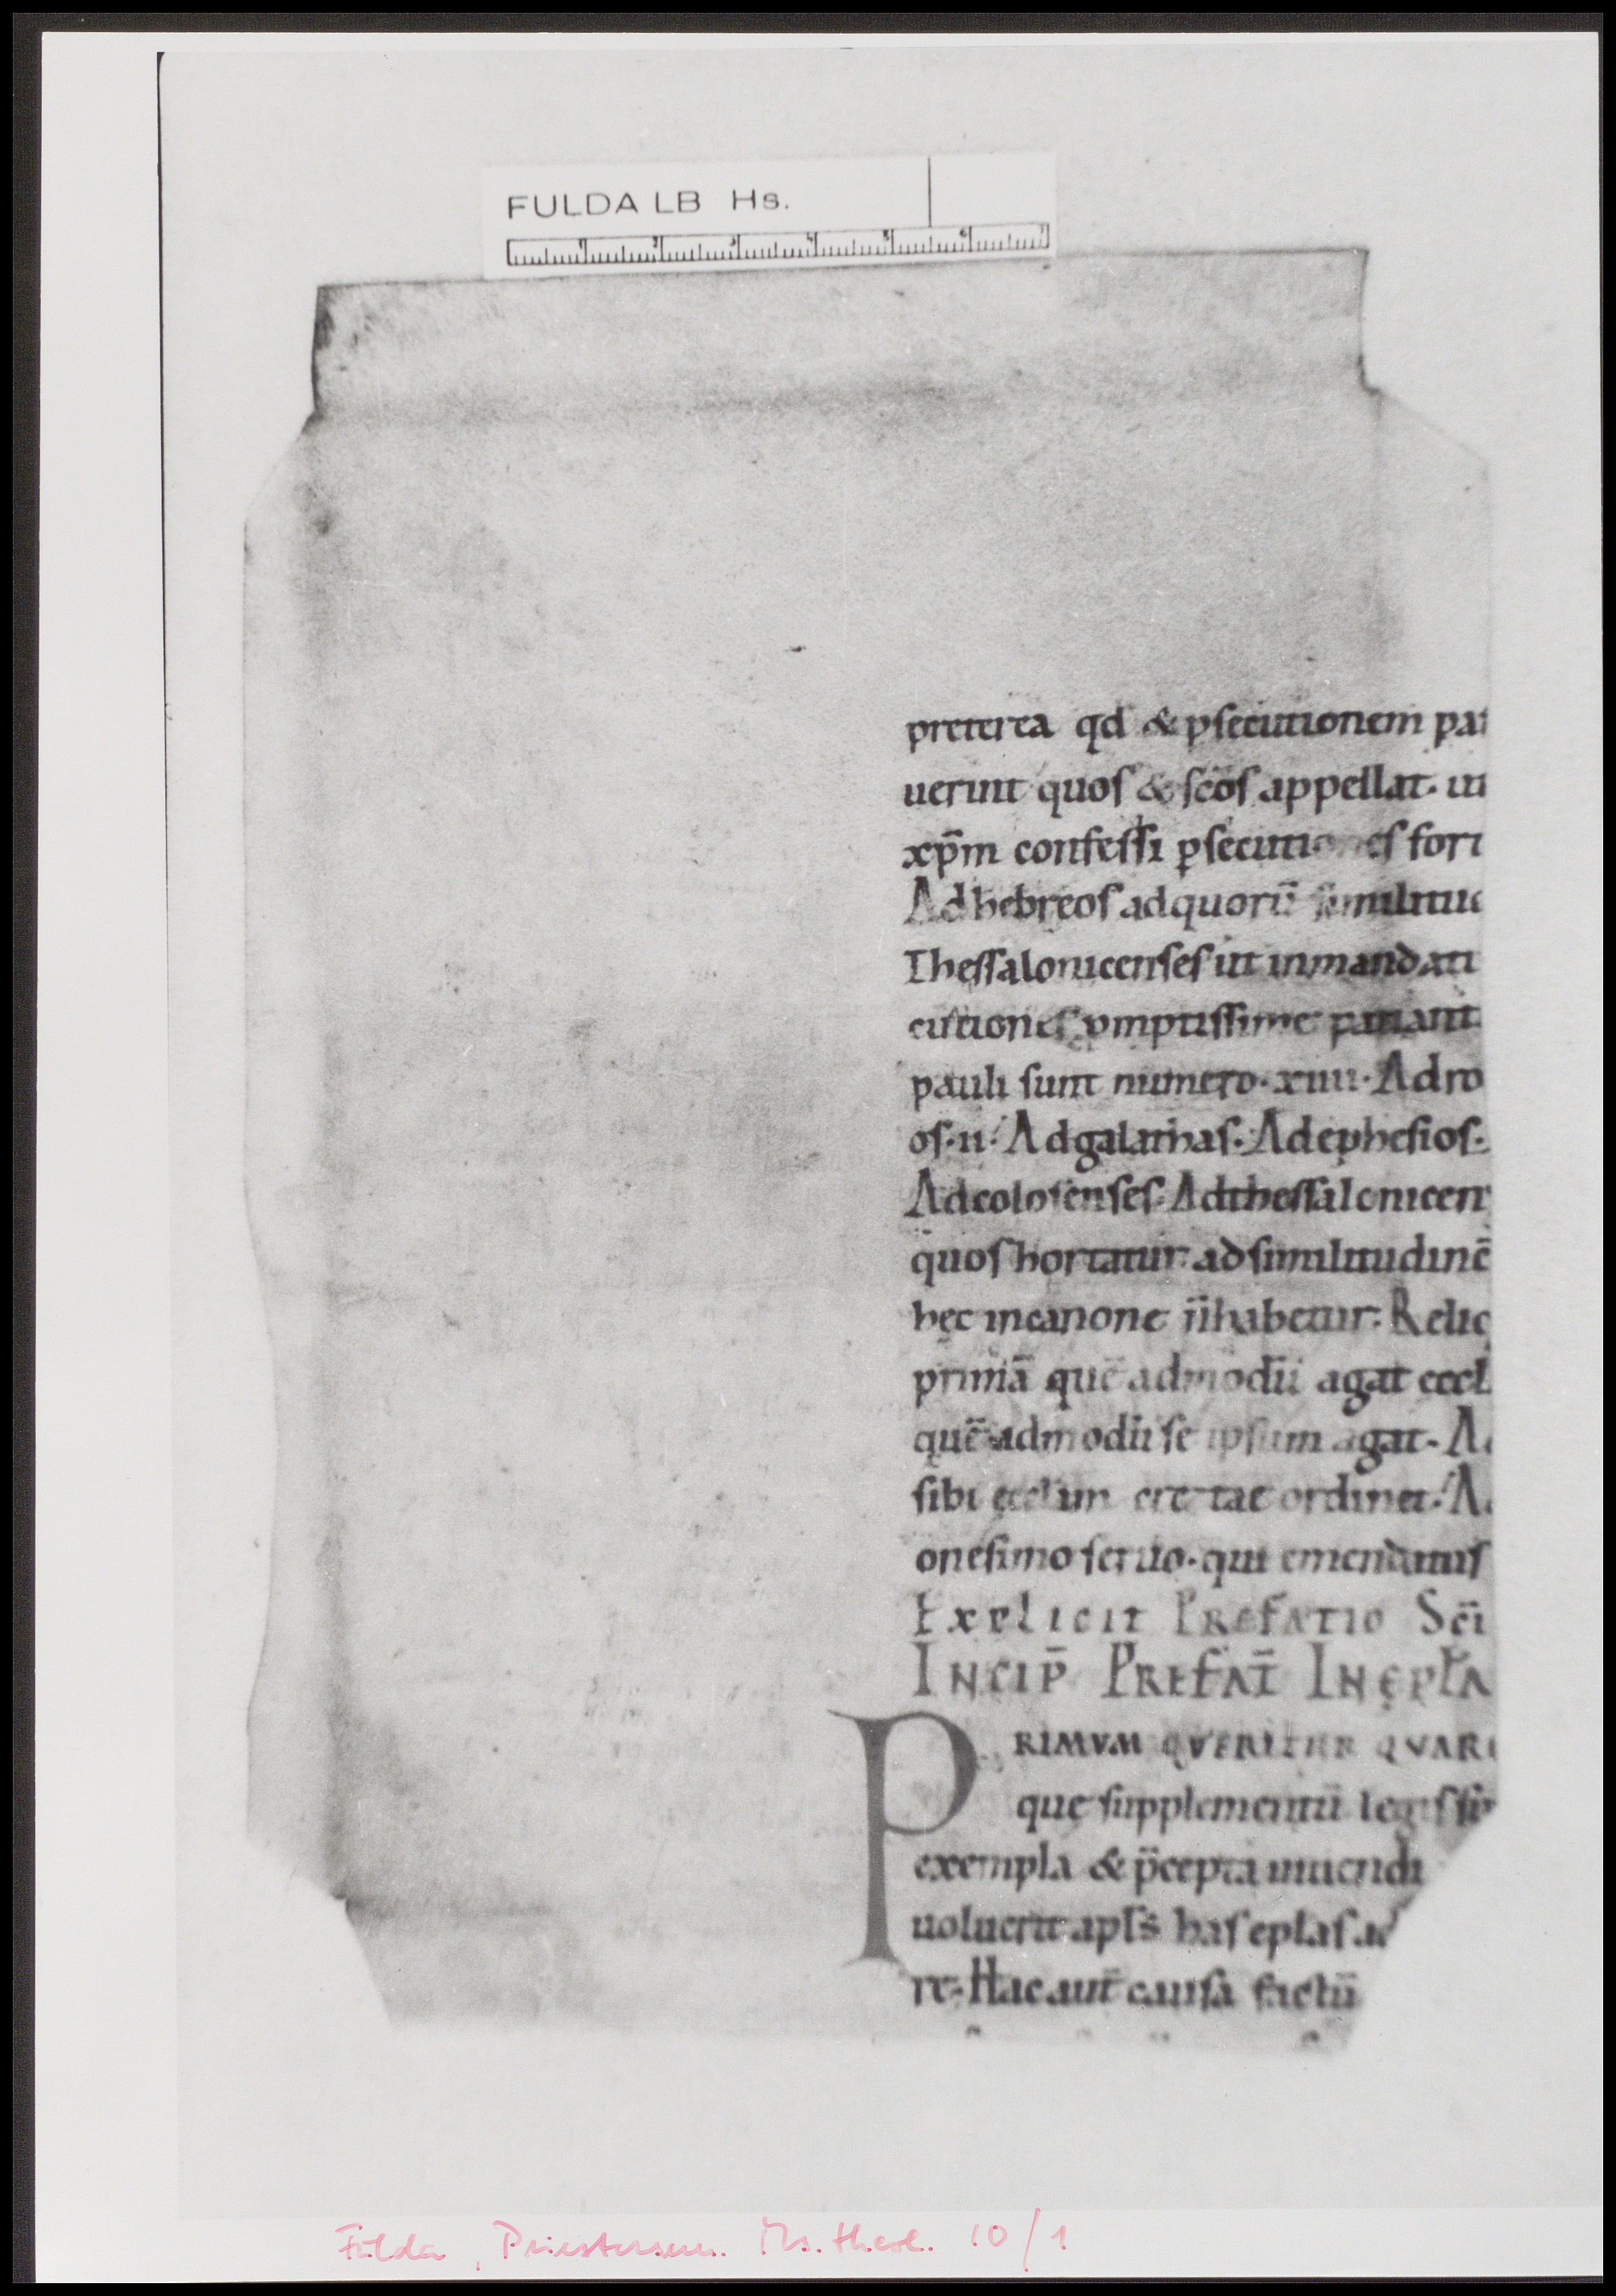 FULDA LB Hs.
preterea qd & ꝑsecutionem pat
uerunt quos & sc̄os appellat. in
xp̄m confessi ꝑsecutiones fort
Ad hebreos ad quorū similitud
Thessalonicenses ut in mandati
cutiones ꝓmptissime patiant
pauli sunt numero. xiiii. Ad ro
os. ii. Ad galathas. Ad ephesios.
Ad colosenses. Ad thessalonicen
quos hortatur ad similitudinē
hęc in canone n̄ habetur. Reliq
primā quē admodū agat eccl
quē admodū se ipsum agat. A
sibi ordinet. A
onesimo seruo. qui emendatus
Explicit Prefatio Sc̄i
Incip̄ Prefat̄ In ępl̄a
PRIMVM QVERITUR QVARE
que supplementū legis
exempla & p̄cepta uiuendi
uoluerit apl̄s has epl̄as
re. Hac aut̄ causa factū
Fulda, Priestersem. Hs. theol. 10/1